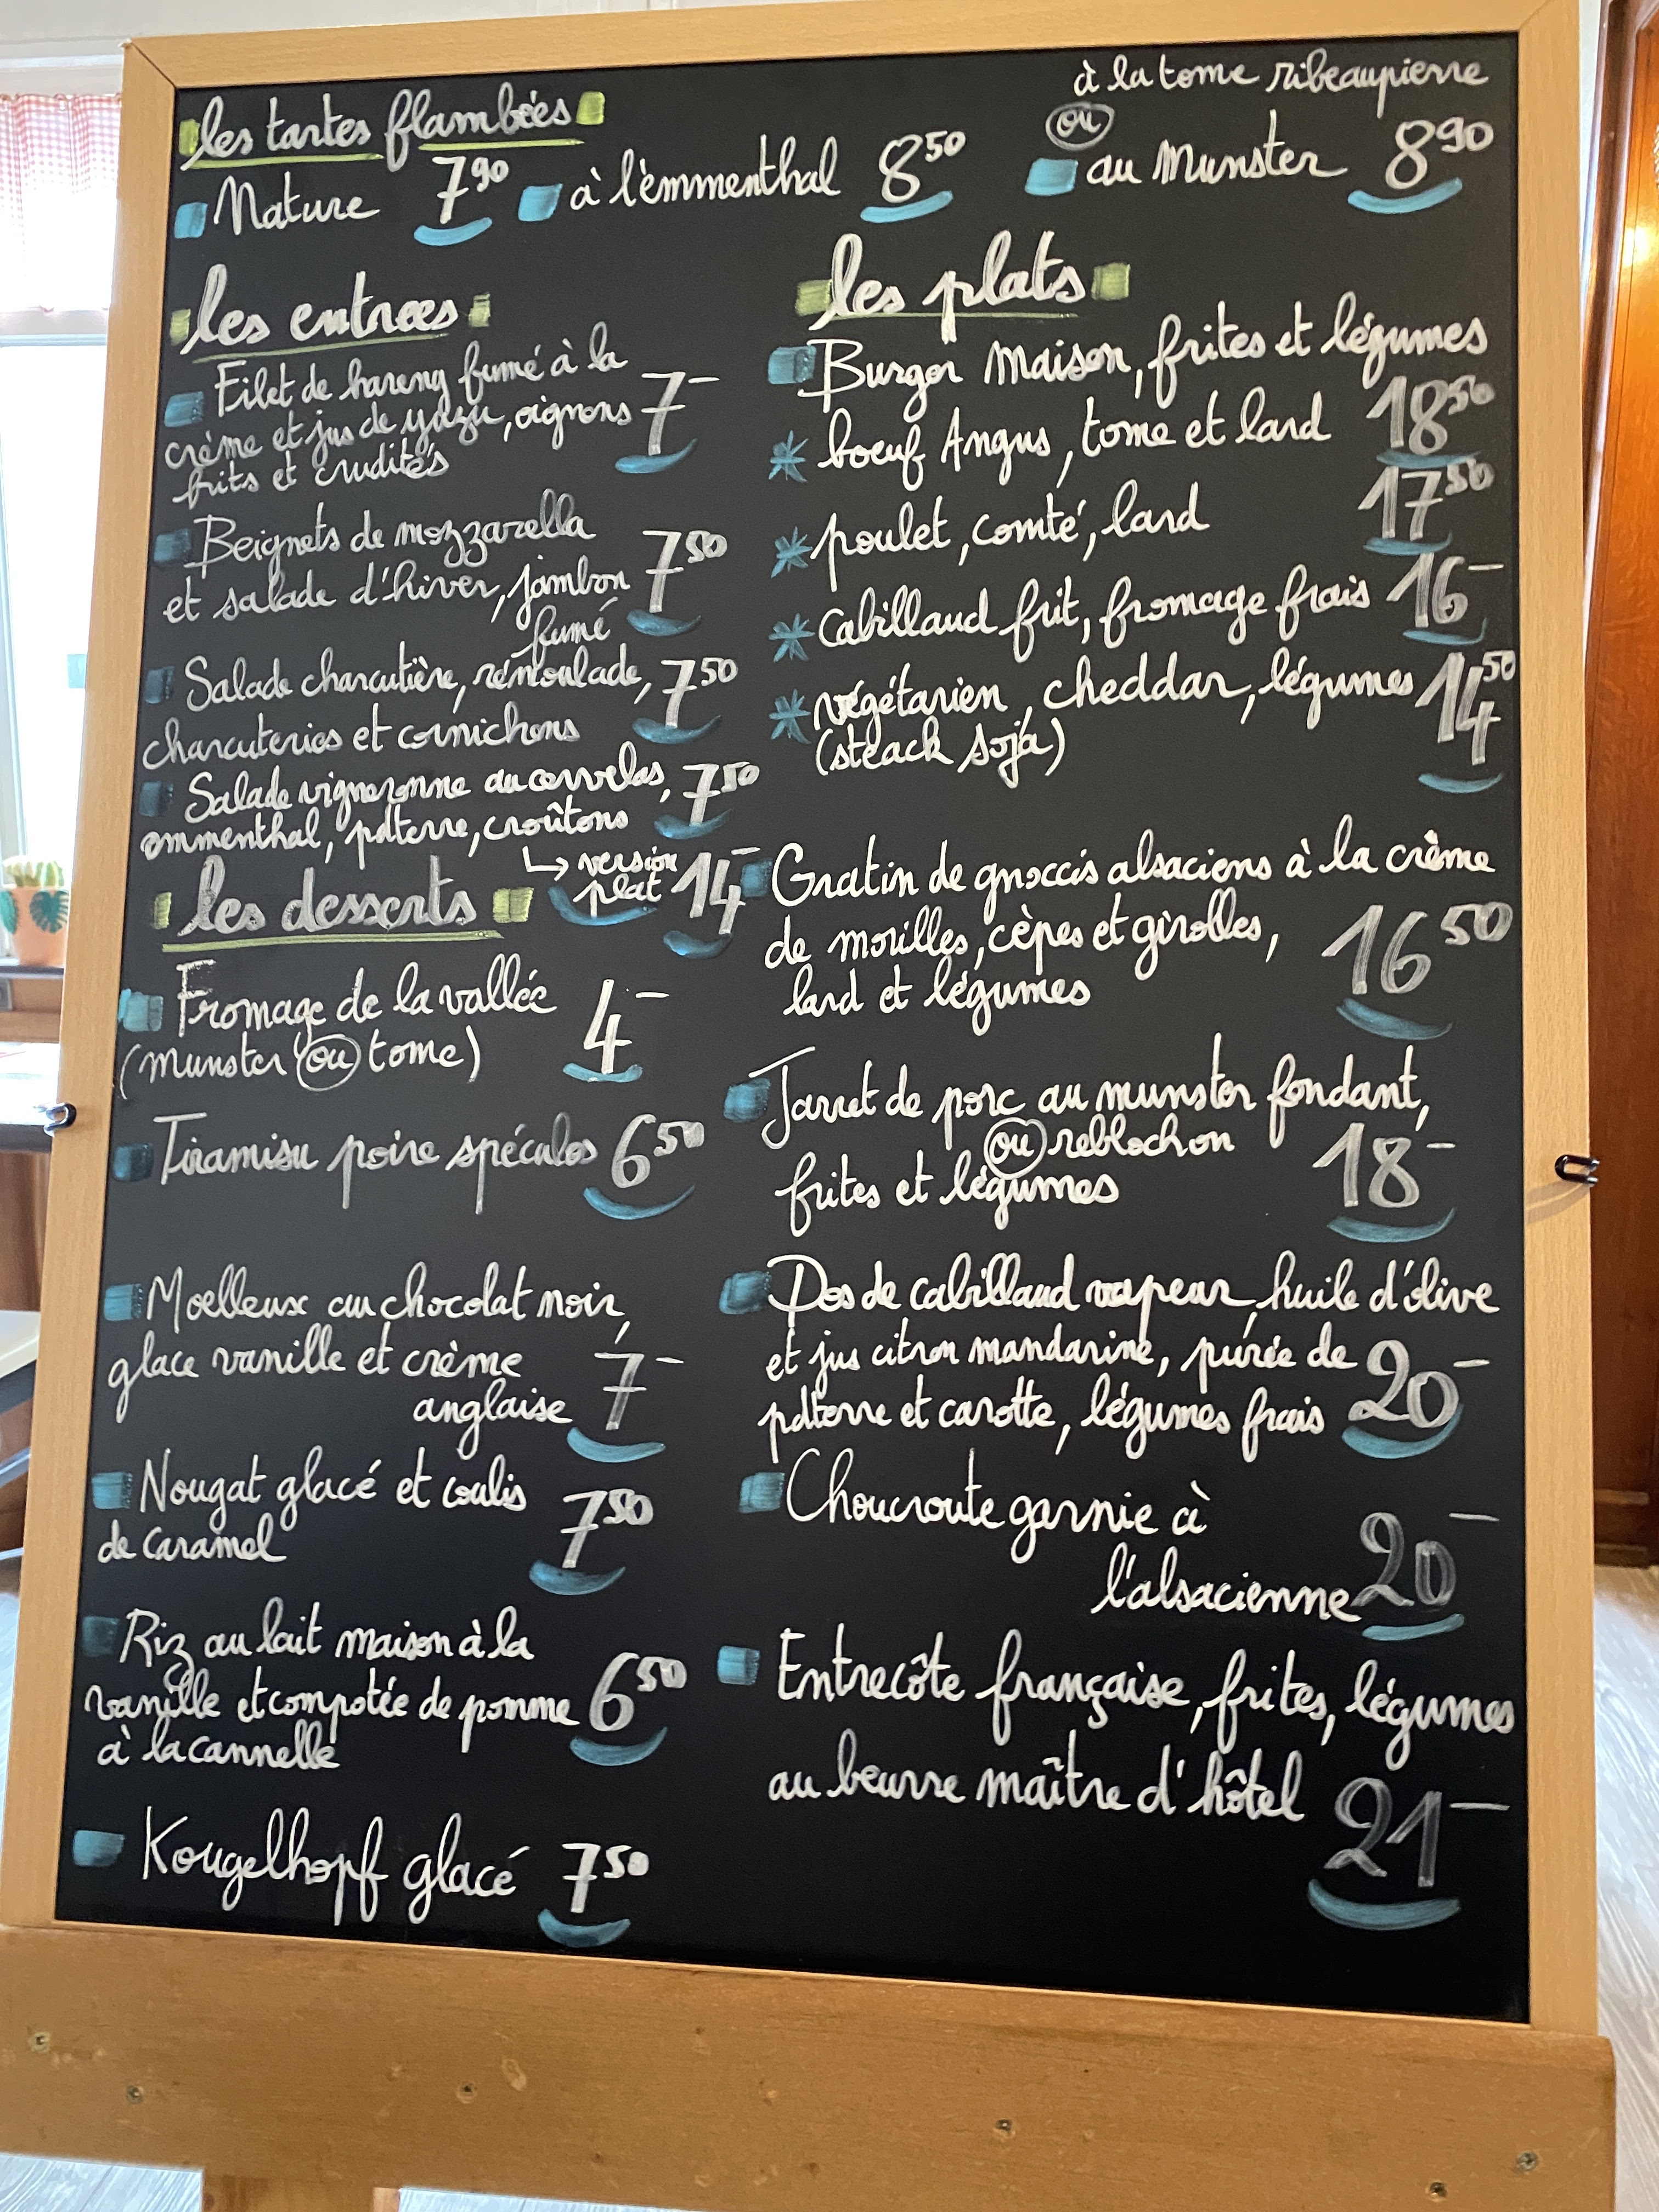 à la tome ribeaupierre
les tartes flambées
ou
Nature 7 90 à l'èmmenthal 8 50 au Munster 8 90
les entrees
Filet de hareng fumé à la
crème et jus de yuzu, oignons 7-
frits et crudités
Beignets de mozzarella
et salade d'hiver, jambon 7 50
fumé
Salade charcutière, rémoulade, 7 50
charcuteries et cornichons
Salade vigneronne au cervelas, 7 50
emmenthal, pdterre, croûtons
↳ version
plat 14-
les desserts
Fromage de la vallée
(munster ou tome) 4-
Tiramisu poire spéculos 6 50
Moelleux au chocolat noir,
glace vanille et crème 7-
anglaise
Nougat glacé et coulis
de caramel 7 50
Riz au lait maison à la
vanille et compotée de pomme 6 50
à la cannelle
Kougelhopf glacé 7 50
les plats
Burger Maison, frites et légumes
* boeuf Angus, tome et lard 18 50
* poulet, comté, lard 17 50
* cabillaud frit, fromage frais 16-
* végétarien, cheddar, légumes 14 50
(steack soja)
Gratin de gnoccis alsaciens à la crème
de morilles, cèpes et girolles, 16 50
lard et légumes
Jarret de porc au munster fondant,
ou reblochon
frites et légumes 18-
Dos de cabillaud vapeur, huile d'olive
et jus citron mandarine, purée de
pdterre et carotte, légumes frais 20-
Choucroute garnie à
l'alsacienne 20-
Entrecôte française, frites, légumes
au beurre maître d'hôtel 21-